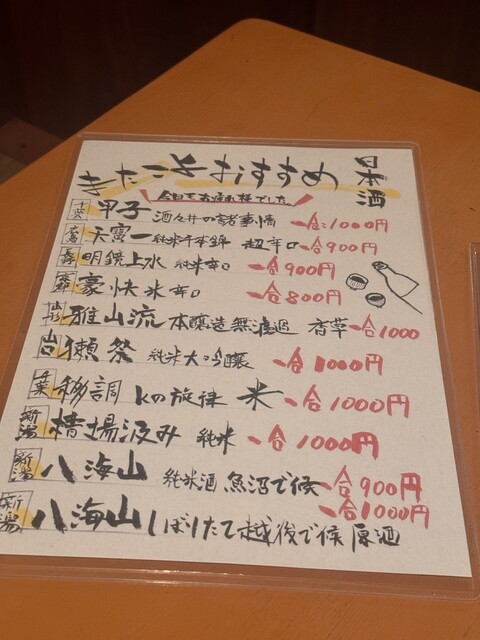 きたこさおすすめ 日本酒
今日もお疲れ様でした
千葉 甲子 酒々井の諸事情 一合1000円
天寳一 純米千本錦 超辛口 一合900円
長野 明鏡上水 純米辛口 一合900円
豪快 米辛口 一合800円
山形 雅山流 本醸造無濾過 香草 一合1000
山口 獺祭 純米大吟醸 一合1000円
千葉 移調 Kの旋律 米 一合1000円
新潟 槽場汲み 純米 一合1000円
新潟 八海山 純米酒 魚沼で候 一合900円
新潟 八海山 しぼりたて越後で候 原酒 一合1000円